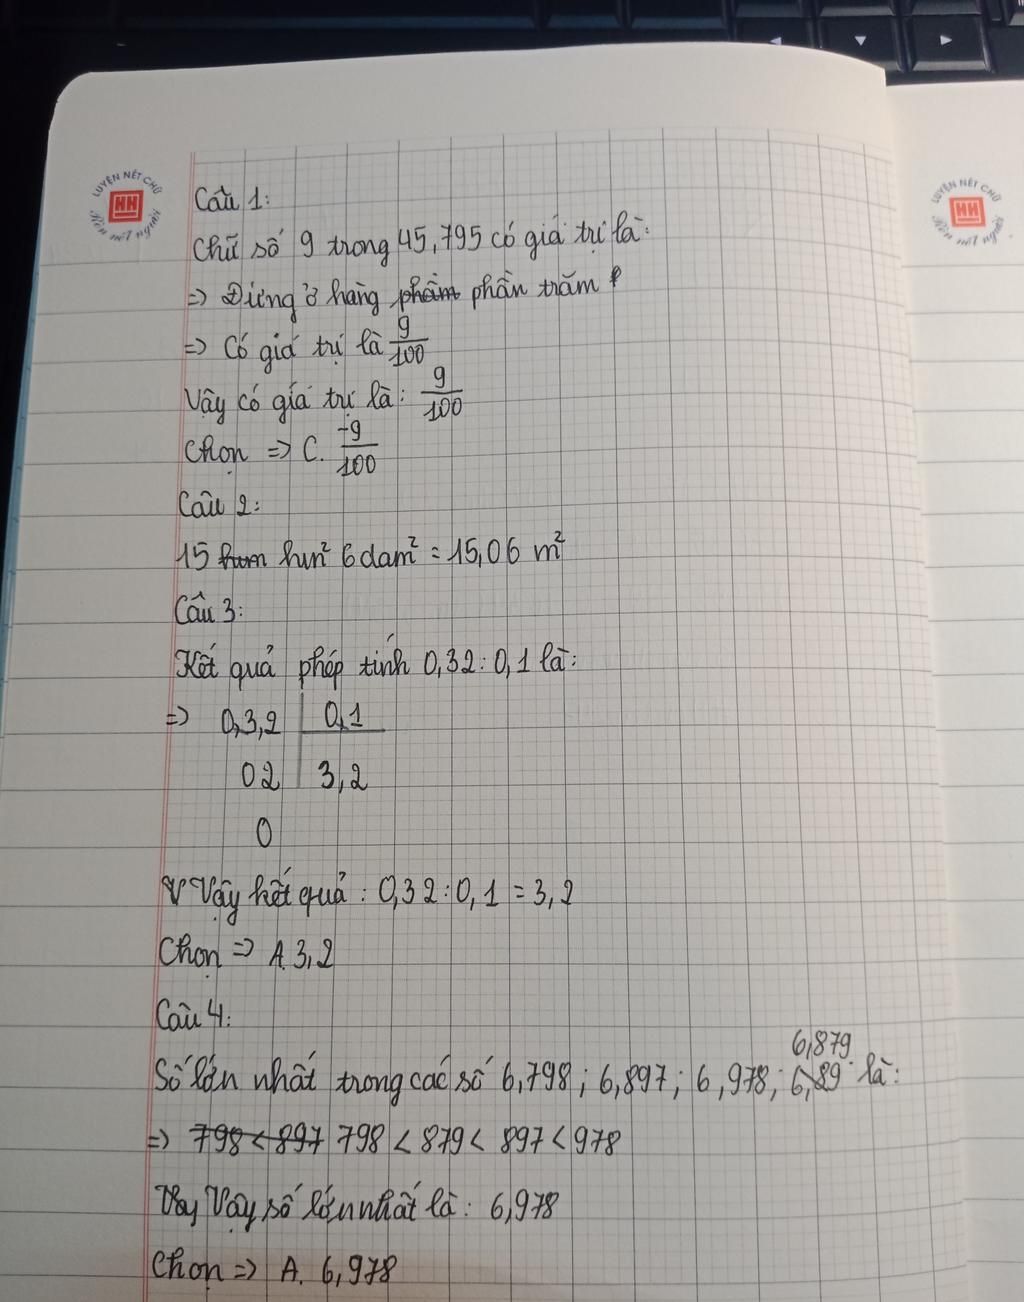 LUYỆN NÉT CHỮ
HH
Rèn nết người
LUYỆN NÉT CHỮ
HH
Rèn nết người
Câu 1:
Chữ số 9 trong 45,795 có giá trị là:
=> Đứng ở hàng phầm phần trăm
=> Có giá trị là 9/100
Vậy có giá trị là: 9/100
Chọn => C. -9/100
Câu 2:
15 hum hm² 6 dam² = 15,06 m²
Câu 3:
Kết quả phép tính 0,32 : 0,1 là:
=> 0,3,2 | 0,1
02 | 3,2
0
V Vậy kết quả : 0,32 : 0,1 = 3,2
Chọn => A. 3,2
Câu 4:
6,879
Số lớn nhất trong các số 6,798 ; 6,897 ; 6,978 ; 6,89 là:
=> 798 < 897 798 < 879 < 897 < 978
Vậy số lớn nhất là: 6,978
Chọn => A. 6,978